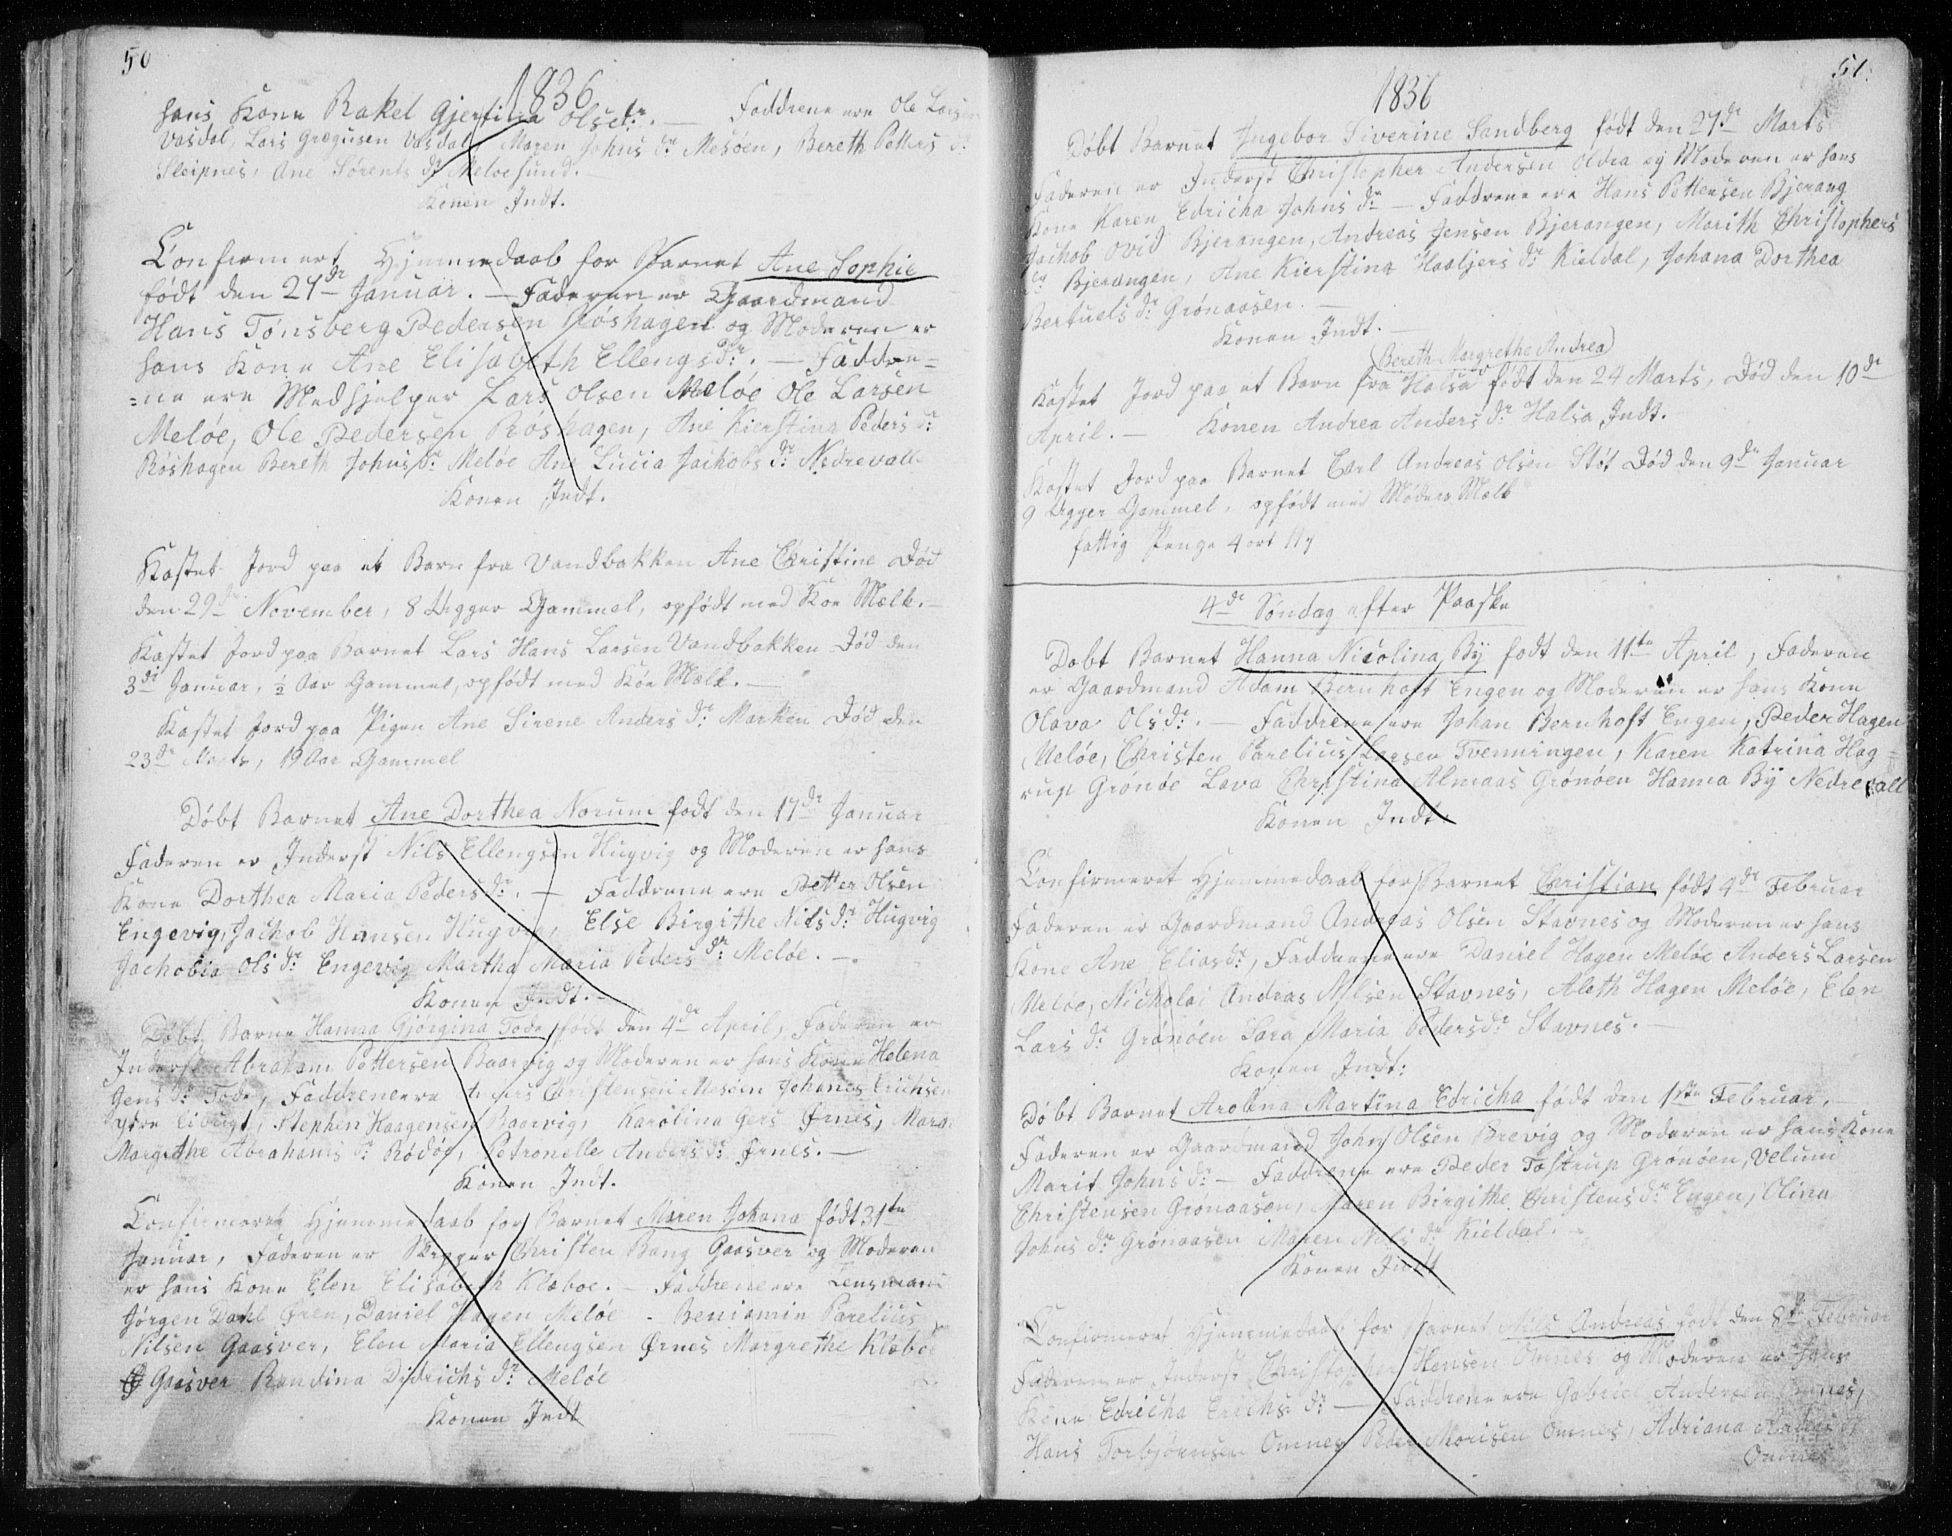 50
1836
hans Kone Rakel Gjertina Olsdr. — Faddrene ere Ole Larsen
Vasdal, Lars Gregusen Vasdal, Maren Johns dr Mesöen, Bereth Petters dr
Sleipnes, Ane Sörens dr Meloesund. —
Konen Indt.
Confirmert Hjemmedaab for Barnet Ane Sophie
født den 24de Januar. — Faderen er Gaardmand
Hans Tønsberg Pedersen Röshagen og Moderen er
hans Kone Ane Elisabeth Ellengsdr. — Faddre=
=ne ere Medhjelper Lars Olsen Meløe Ole Larsen
Meløe, Ole Pedersen Röshagen, Ane Kierstina Peders dr
Röshagen Bereth Johns dr Meløe Ane Lucia Jachobs dr Nedrevall
Konen Indt.
Kastet Jord paa et Barn fra Vandbakken Ane Christine Død
den 29de November, 8 Ugger Gammel, opfødt med Koe Mælk. —
Kastet Jord paa Barnet Lars Hans Larsen Vandbakken Død den
3de Januar, ½ Aar Gammel, opfødt med Köe Mælk. —
Kastet Jord paa Pigen Ane Sirene Anders dr Marken Død den
23de Marts, 19 Aar Gammel
Døbt Barnet Ane Dorthea Norum født den 17de Januar
Faderen er Inderst Nils Ellengsen Hugvig og Moderen er hans
Kone Dorthea Maria Pedersdr. — Faddrene ere Petter Olsen
Engevig, Jachob Hansen Hugvig, Else Birgithe Nils dr Hugvig
Jachobia Ols dr Engevig Martha Maria Peders dr Meløe. —
Konen Indt. —
Døbt Barne Hanna Gjörgina Tode født den 4de April, Faderen er
Inderst Abraham Pettersen Baarvig og Moderen er hans Kone Helena
Jens dr Tode, Faddrene ere Christensen Mesöen Johanes Erichsen
Ytre Stephen Haagensen Baarvig, Karolina Gers Ørnes,
Margrethe Abrahams dr Rödöe, Petronelle Anders dr Ørnes. —
Konen Indt.
Confirmeret Hjemmedaab for Barnet Maren Johana født 31te
Januar, Faderen er Skipper Christen Bang Gaasver og Moderen
er hans Kone Elen Elisabeth Klæboe. — Faddrene ere Lensmand
Jörgen Dahl Ören, Daniel Hagen Meløe - Beniamin Parelius
Nilsen Gaasver, Elen Maria Ellengsen Ørnes Margrethe Klæboe
Gaasver Randina Didrichs dr Meløe
Konen Indt
51.
1836
Døbt Barnet Ingebor Siverine Sandberg født den 27de Marts
Faderen er Inderst Christopher Andersen Oldra og Moderen er hans
Kone Karen Edricha Johns dr — Faddrene ere Hans Pettersen Bjerang
Jachob Ovid Bjerangen, Andreas Jensen Bjerangen, Marith Christophers
dr Bjerangen, Ane Kierstina Haaljers dr Kieldal, Johana Dorthea
Bertuels dr Grönaasen. —
Konen Indt. —
(Bereth Margrethe Andrea)
Kastet Jord paa et Barn fra Halsa født den 24 Marts, Død den 10de
April. — Konen Andrea Anders dr Halsa Indt.
Kastet Jord paa Barnet Carl Andreas Olsen Støt Død den 9de Januar
9 Ugger Gammel, opfødt med Moders Mælk
fattig Penge 4 ort
4de Søndag efter Paaske
Døbt Barnet Hanna Nicolina By født den 11te April, Faderen
er Gaardmand Adam Bernhoft Engen og Moderen er hans Kone
Olava Olsdr. — Faddrene ere Johan Bernhoft Engen, Peder Hagen
Meløe, Christen Parelius Larsen Tvenningen, Karen Katrina Hag=
rup Grönöe Lava Christina Almaas Grönöen Hanna By Nedrevall
Konen Indt.
Confirmeret Hjemmedaab for Barnet Christian født 4de Februar
Faderen er Gaardmand Andreas Olsen Stavnes og Moderen er hans
Kone Ane Eliasdr, Faddrene ere Daniel Hagen Meløe Anders Larsen
Meløe, Nickolai Andreas Nilsen Stavnes, Aleth Hagen Meløe, Elen
Lars dr Grönöen Sara Maria Pedersdr Stavnes. —
Konen Indt:
Døbt Barnet Arolina Martina Edricha født den 1ste Februar, —
Faderen er Gaardmand John Olsen Brevig og Moderen er hans Kone
Marit Johns dr — Faddrene ere Peder Tostrup Grönöen, Velum
Christensen Grönaasen, Maren Birgithe Christens dr Engen, Olina
Johns dr Grönaasen Maren Nils dr Kieldal. —
Konen Indt
Confirmeret Hjemmedaab for Barnet Nils Andreas født den 8de Februar
Faderen er Inderst Christopher Hensen Omnes og Moderen er hans
Kone Edricha Erichs dr — Faddrene ere Gabriel Andersen Omnes,
Hans Torbjörnsen Omnes Peder Morisen Omnes, Adriana Anders dr
Omnes